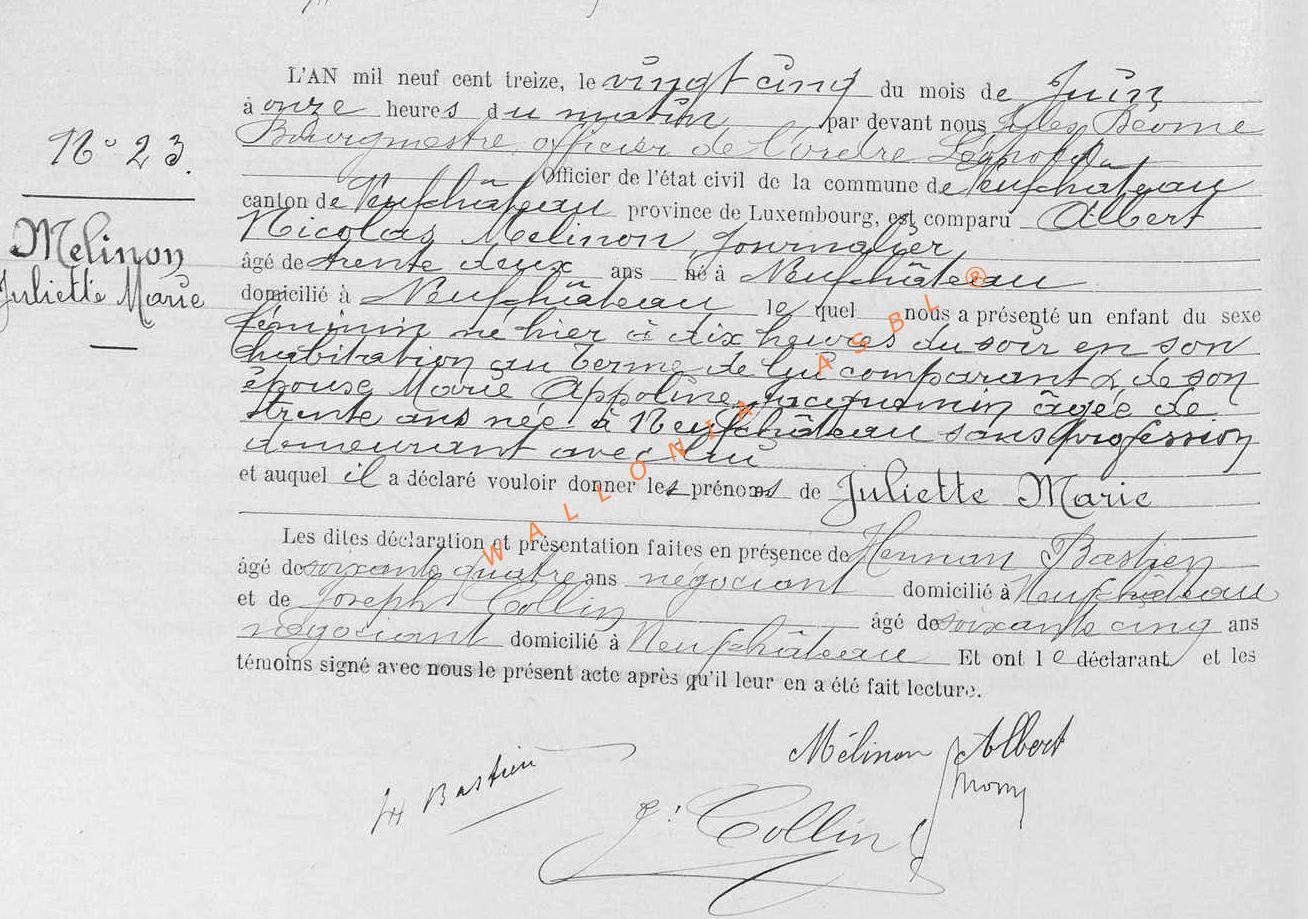 N° 23.
Mélinon
Juliette Marie
L'AN mil neuf cent treize, le vingt cinq du mois de Juin
à onze heures du matin par devant nous Jules
Bourgmestre, officier de l'ordre Léopold
Officier de l'état civil de la commune de Neufchâteau
canton de Neufchâteau province de Luxembourg, est comparu Albert
Nicolas Mélinon journalier
âgé de trente deux ans né à Neufchâteau
domicilié à Neufchâteau le quel nous a présenté un enfant du sexe
féminin né hier à dix heures du soir en son
habitation au Terme de lui comparant & de son
épouse Marie Appoline Jacquemin âgée de
trente ans née à Neufchâteau sans profession
demeurant avec lui
et auquel il a déclaré vouloir donner les prénoms de Juliette Marie
Les dites déclaration et présentation faites en présence de Bastien
âgé de soixante quatre ans négociant domicilié à Neufchâteau
et de Joseph Collin âgé de soixante cinq ans
négociant domicilié à Neufchâteau Et ont le déclarant et les
témoins signé avec nous le présent acte après qu'il leur en a été fait lecture.
Mélinon Albert
H Bastien
J. Collin
WALLONIA ASBL ®